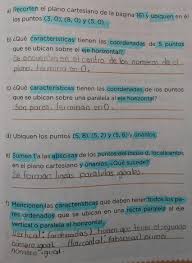 a) Recorten el plano cartesiano de la página 167 y ubiquen en él
los puntos (3, 0), (8, 0) y (5, 0).
b) ¿Qué características tienen las coordenadas de 5 puntos
que se ubican sobre el eje horizontal?
Se encuentran en el centro de los números de el
plano, termina en 0.
c) ¿Qué características tienen las coordenadas de los puntos
que se ubican sobre una paralela al eje horizontal?
Son pares, terminan en 0.
d) Ubiquen los puntos (5, 8), (5, 2) y (5, 6) y únanlos.
e) Sumen 1 a las abscisas de los puntos del inciso d, localícenlos
en el plano cartesiano y únanlos. ¿Qué sucede?
Se forman líneas paralelas iguales
f) Mencionen las características que deben tener todos los pa-
res ordenados que se ubican en una recta paralela al eje
vertical o paralela al horizontal.
Vertical: Ordenadas y tienen que tener el segundo
número igual. Horizontal: abscisas primer
número igual.